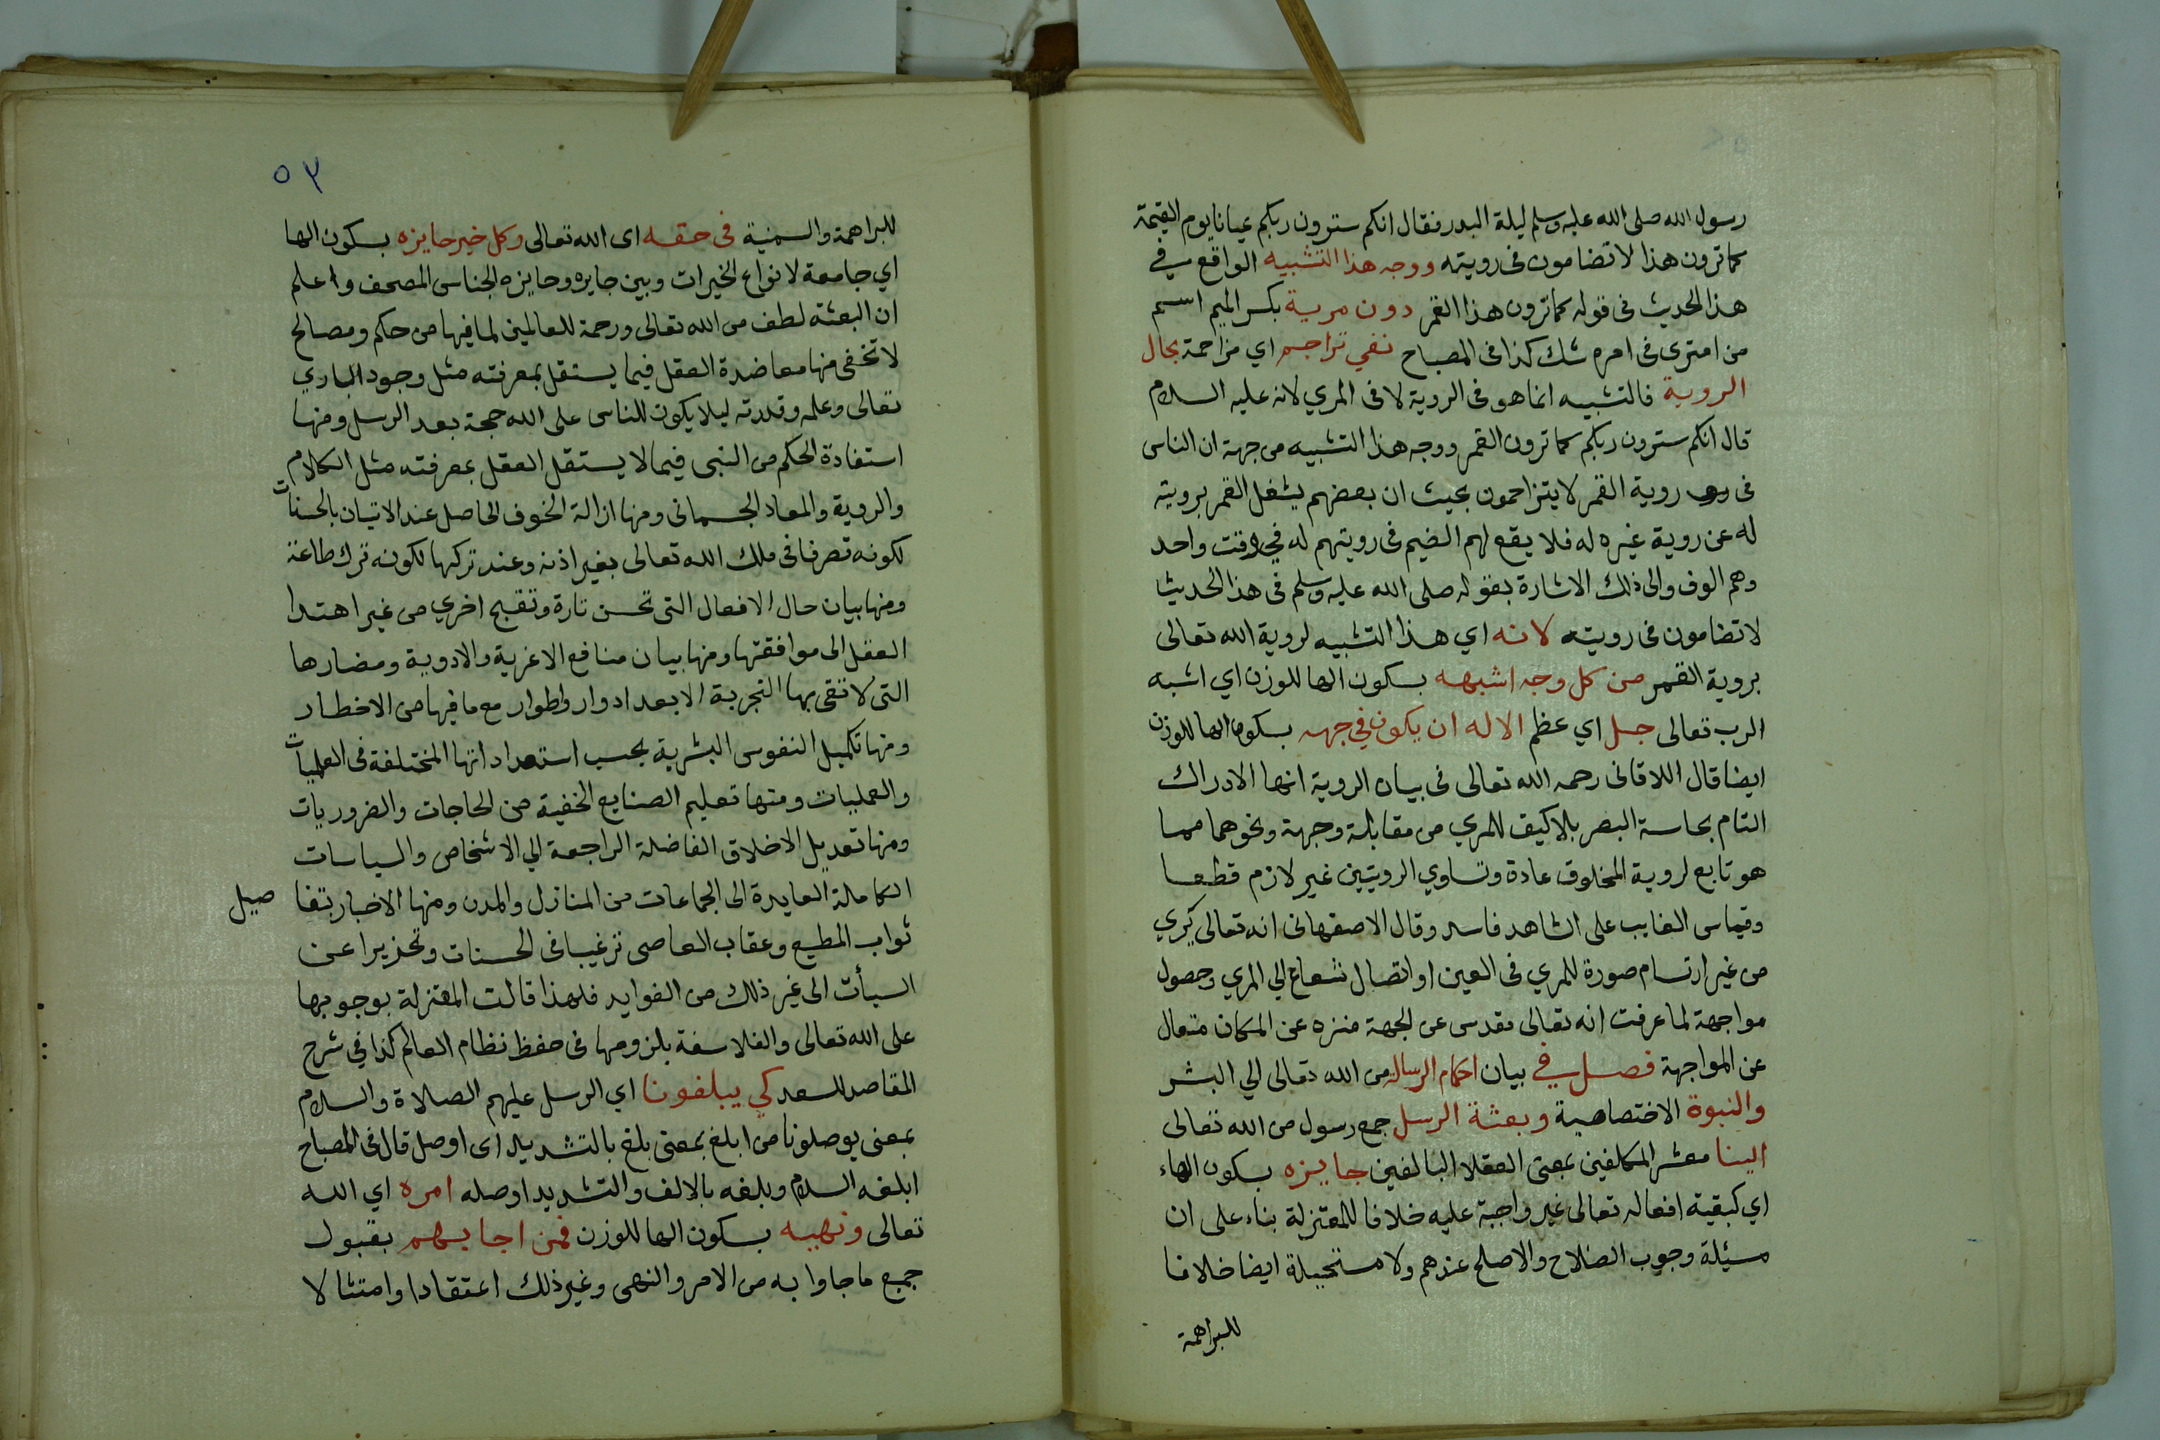 رسول الله صلى الله عليه وسلم ليلة البدر فقال انكم سترون ربكم عيانا يوم القيمة
كما ترون هذا لا تضامون فى رويته ووجه هذا التشبيه الواقع في
هذا الحديث فى قوله كما ترون هذا القمر دون مرية بكسر الميم اسم
من امترى فى امره شك كذا فى المصباح نفي تزاحم اي مزاحمة بحال
الروية فالتشبيه انما هو فى الروية لا فى المري لانه عليه السلام
قال انكم سترون ربكم كما ترون القمر ووجه هذا التشبيه من جهة ان الناس
فى روية القمر لا يتزاحمون بحيث ان بعضهم يشغل القمر برويته
له عن روية غيره له فلا يقع لهم الضيم فى رويتهم له في وقت واحد
وهم الوف والى ذلك الاشارة بقوله صلى الله عليه وسلم فى هذا الحديث
لا تضامون فى رويته لانه اي هذا التشبيه لروية الله تعالى
بروية القمر من كل وجه اشبهه بسكون الها للوزن اي اشبه
الرب تعالى جل اي عظم الاله ان يكون في جهه بسكون الها للوزن
ايضا قال اللاقانى رحمه الله تعالى فى بيان الروية انها الادراك
التام بحاسة البصر بلا كيف للمري من مقابلة وجهة ونحوهما مما
هو تابع لروية المخلوق عادة وتساوي الرويتين غير لازم قطعا
وقياس الغايب على الشاهد فاسد وقال الاصفهانى انه تعالى يري
من غير ارتسام صورة للمري فى العين او اتصال شعاع الي المري وحصول
مواجهة لما عرفت انه تعالى مقدس عن الجهة منزه عن المكان متعال
عن المواجهة فصل في بيان احكام الرساله من الله تعالى الي البشر
والنبوة الاختصاصية وبعثة الرسل جمع رسول من الله تعالى
الينا معشر المكلفين بمعنى العقلا البالغين جايزه بسكون الهاء
اي كبقية افعاله تعالى غير واجبة عليه خلافا للمعتزلة بناء على ان
مسئلة وجوب الصلاح والاصلح عندهم ولا مستحيلة ايضا خلافا
للبراهمة
٥٣
للبراهمة والسمنية فى حقه اى الله تعالى وكل خير حايزه بسكون الها
اي جامعة لانواع الخيرات وبين جايزه وحايزه الجناس المصحف واعلم
ان البعثة لطف من الله تعالى ورحمة للعالمين لما فيها من حكم ومصالح
لا تخفى منها معاضدة العقل فيما يستقل بمعرفته مثل وجود الباري
تعالى وعلمه وقدرته ليلا يكون للناس على الله حجة بعد الرسل ومنها
استفادة الحكم من النبى فيما لا يستقل العقل بمعرفته مثل الكلام
والروية والمعاد الجسمانى ومنها ازالة الخوف الحاصل عند الاتيان بالحسنات
لكونه تصرفا فى ملك الله تعالى بغير اذنه وعند تركها لكونه ترك طاعة
ومنها بيان حال الافعال التى تحسن تارة وتقبح اخري من غير اهتدا
العقل الى موافقتها ومنها بيان منافع الاغزية والادوية ومضارها
التى لا تفى بها التجربة الا بعد ادوار واطوار مع ما فيها من الاخطار
ومنها تكميل النفوس البشرية بحسب استعداداتها المختلفة فى العلميات
والعمليات ومنها تعليم الصنايع الخفية من الحاجات والضروريات
ومنها تعديل الاخلاق الفاضلة الراجعة الي الاشخاص والسياسات
الكاملة العايدة الى الجماعات من المنازل والمدن ومنها الاخبار بتفا صيل
ثواب المطيع وعقاب العاصى ترغيبا فى الحسنات وتحذيرا عن
السيأت الى غير ذلك من الفوايد فلهذا قالت المعتزلة بوجوبها
على الله تعالى والفلاسفة بلزومها فى حفظ نظام العالم كذا في شرح
المقاصد للسعد كي يبلغونا اي الرسل عليهم الصلاة والسلام
بمعنى يوصلونا من ابلغ بمعنى بلغ بالتشديد اى اوصل قال فى المصباح
ابلغه السلام وبلغه بالالف والتشديد اوصله امره اي الله
تعالى ونهيه بسكون الها للوزن فمن اجابهم بقبول
جميع ما جاوا به من الامر والنهى وغير ذلك اعتقادا وامتثالا